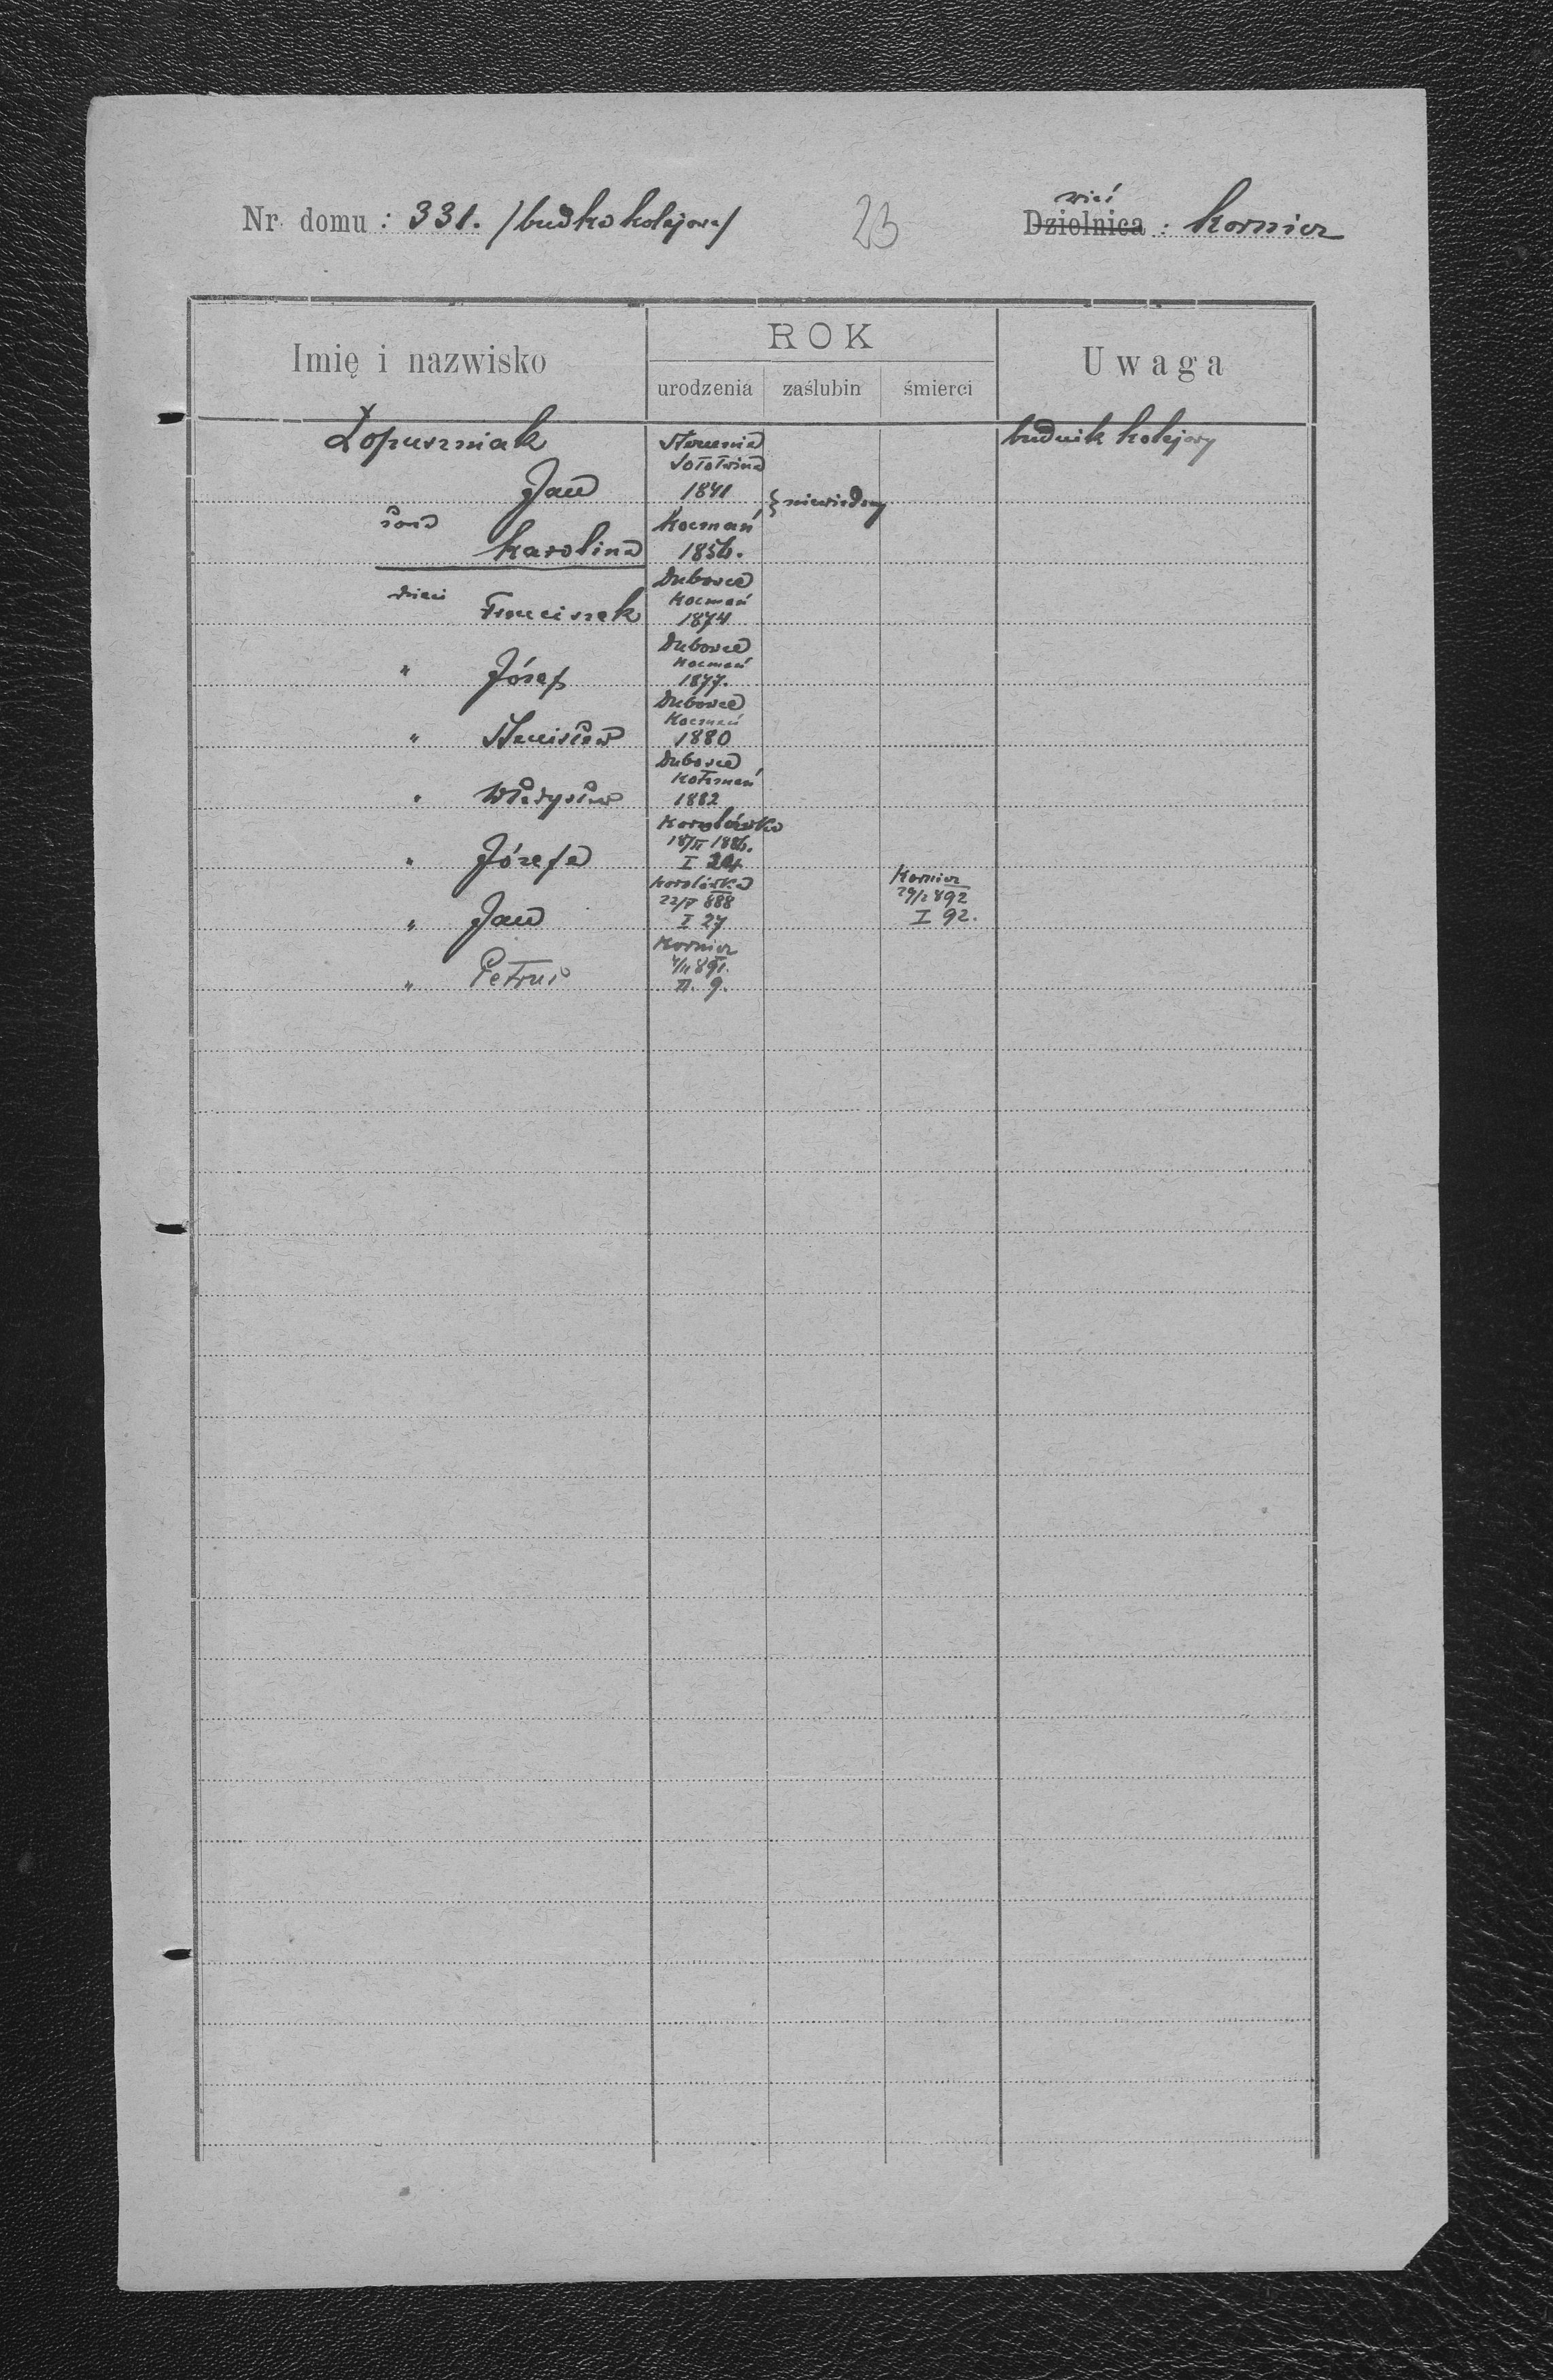 Nr. domu : 331. /budka kolejowa/
23
wieś
Dzielnica : Kornicz
Imię i nazwisko
ROK
urodzenia zaślubin śmierci
Uwaga
Łopuszniak
Sołotwina
budnik kolejowy
Jan
1841
} niewiadomy
żona
Kocmań
Karolina
1856.
Dubowce
dzieci
Kocmań
Franciszek
1874
Dubowce
Kocmań
" Józef
1877.
Dubowce
Kocmań
" Stanisław
1880
Dubowce
" Władysław
1882
18/II 1886.
" Józefa
I 24
Kornicz
22/V 888
29/I 892
" Jan
I 27
I 92.
Kornicz
4/II 891.
" Petruś
II. 9.